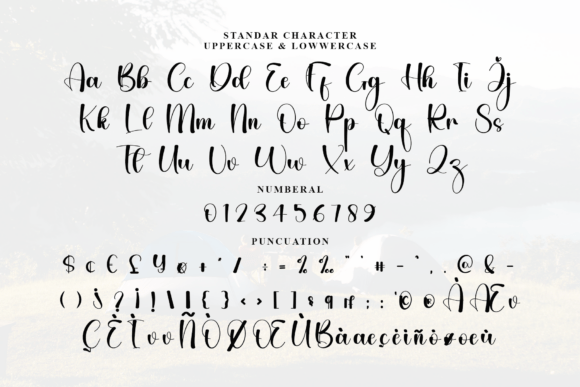 STANDAR CHARACTER
UPPERCASE & LOWWERCASE
Aa Bb Cc Dd Ee Ff Gg Hh Ii Jj
Kk Ll Mm Nn Oo Pp Qq Rr Ss
Tt Uu Vv Ww Xx Yy Zz
NUMBERAL
0 1 2 3 4 5 6 7 8 9
PUNCUATION
$ ¢ € £ ¥ ¤ + ' / ÷ = % ‰ " ' # - ' , . @ & -
( ) ¿ ? ¡ ! \ | { } < > [ ] § ¶ : ; © ® À Æ
Ç È Ì Ñ Ò Ø Œ Ù ß à æ ç è ì ñ ò ø œ ù